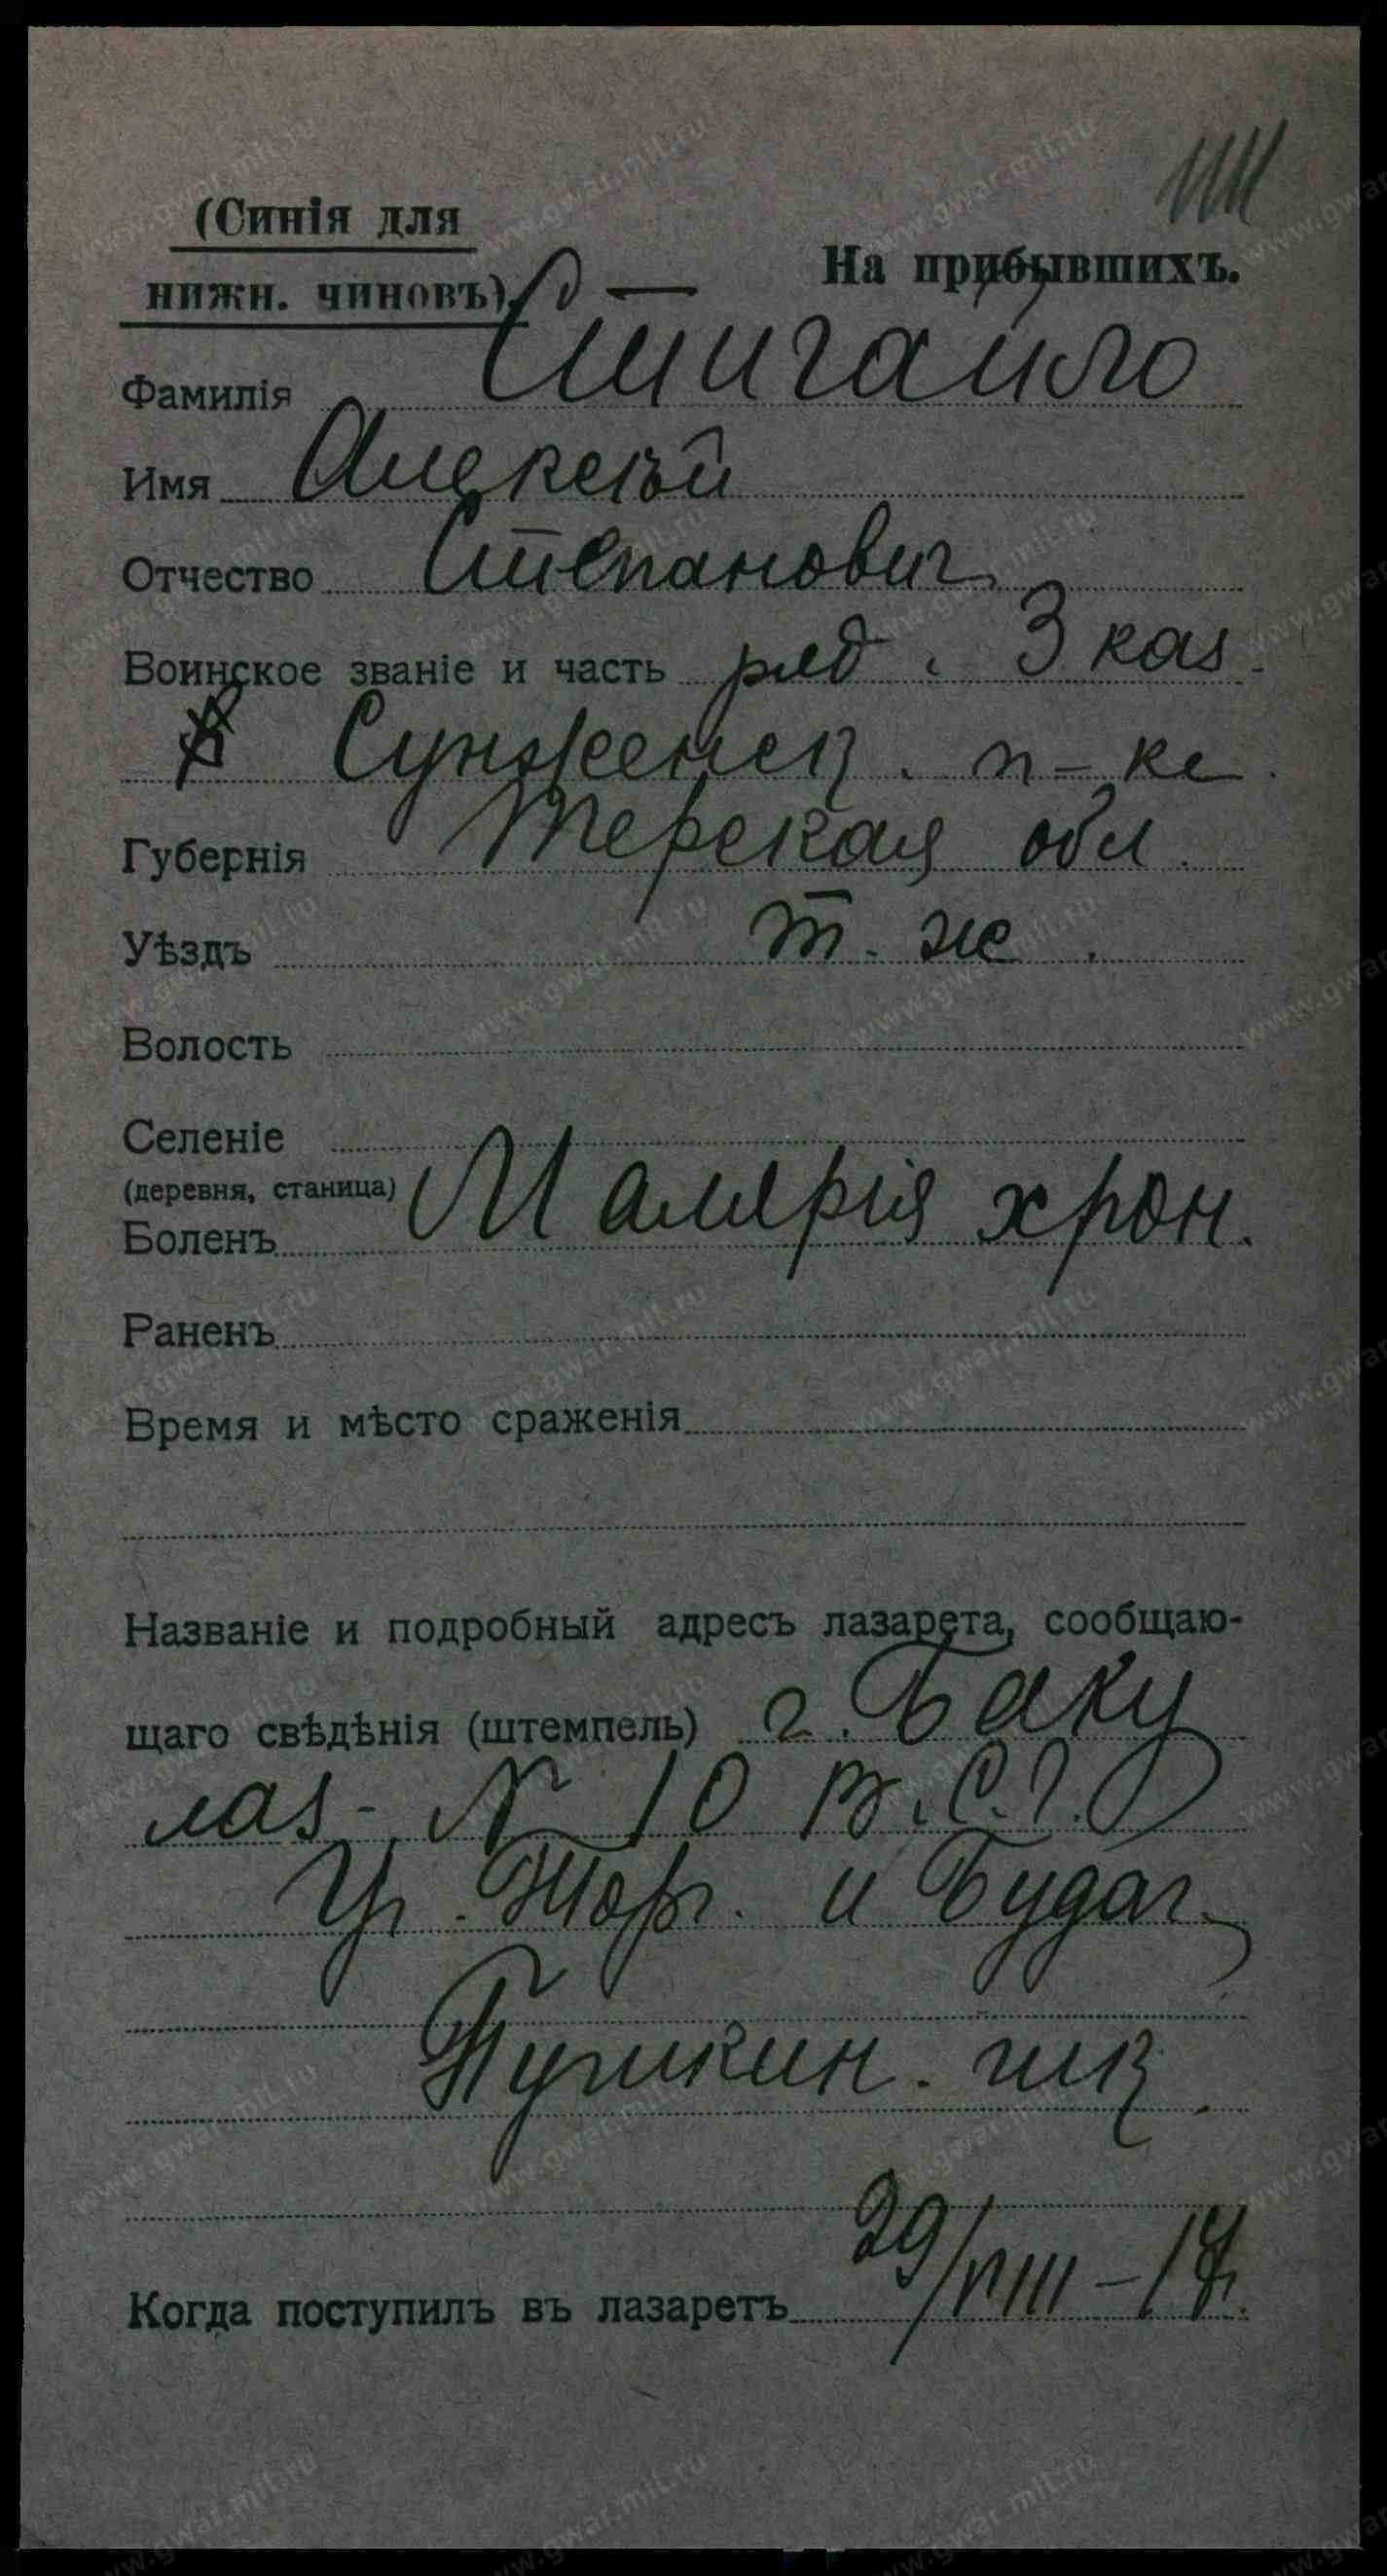 (Синія для
нижн. чиновъ)
На прибывшихъ.
Фамилія Стигайло
Имя Алексѣй
Отчество Степанович
Воинское званіе и часть ряд. 3 каз.
Сунженск. п-ке
Губернія Терская обл.
Уѣздъ т. же.
Волость
Селеніе
(деревня, станица)
Боленъ Малярія хрон.
Раненъ
Время и мѣсто сраженія
Названіе и подробный адресъ лазарета, сообщаю-
щаго свѣдѣнія (штемпель) г. Баку
лаз. № 10 В.С.Г.
Уг. Торг. и Будаг.
Пушкин. шк.
Когда поступилъ въ лазаретъ 29/VIII-17г.